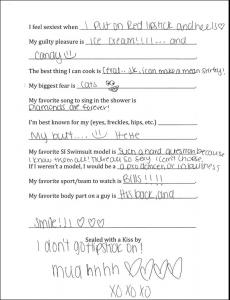 I feel sexiest when I Put on Red lipstick and heels♡
My guilty pleasure is Ice cream!!!!... and
candy ☺
The best thing I can cook is Cereal.. Jk. i can make a mean stirfry!
My biggest fear is Cats
My favorite song to sing in the shower is
Diamonds are forever!
I'm best known for my (eyes, freckles, hips, etc.)
My butt.... ☺ Hehe
My favorite SI Swimsuit model is Such a hard question because
I know them all! They're all so sexy I can't choose.
If I weren't a model, I would be a pro dancer, or in business
My favorite sport/team to watch is Bills!!!!
My favorite body part on a guy is His back, and
Smile!!! ♡♡♡
Sealed with a Kiss by
I don't got lipstick on!
muahhhh ♡♡♡♡
XO XO XO